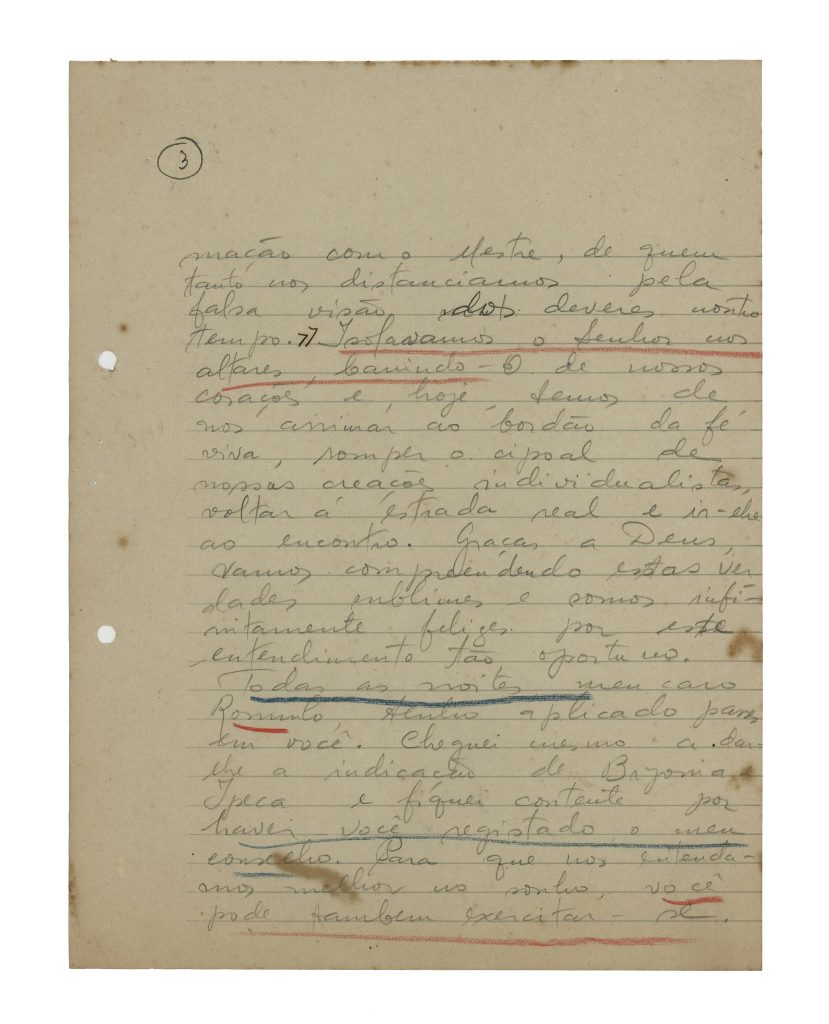 3
mação com o Mestre, de quem
tanto nos distanciamos pela
falsa visão dos deveres nosso
tempo. » Isolavamos o Senhor nos
altares, banindo-O de nossos
corações e, hoje, temos de
nos arrimar ao bordão da fé
viva, romper o cipoal de
nossas creações individualistas,
voltar á estrada real e ir-lhe
ao encontro. Graças a Deus,
vamos compreendendo estas ver
dades sublimes e somos infi-
nitamente felizes por este
entendimento tão oportuno.
Todas as noites meu caro
Romulo, tenho aplicado passes
em você. Cheguei mesmo a dar-
lhe a indicação de Bryonia e
Ipeca e fiquei contente por
haver você registado o meu
conselho. Para que nos entenda-
mos melhor no sonho, você
pode tambem exercitar-se.